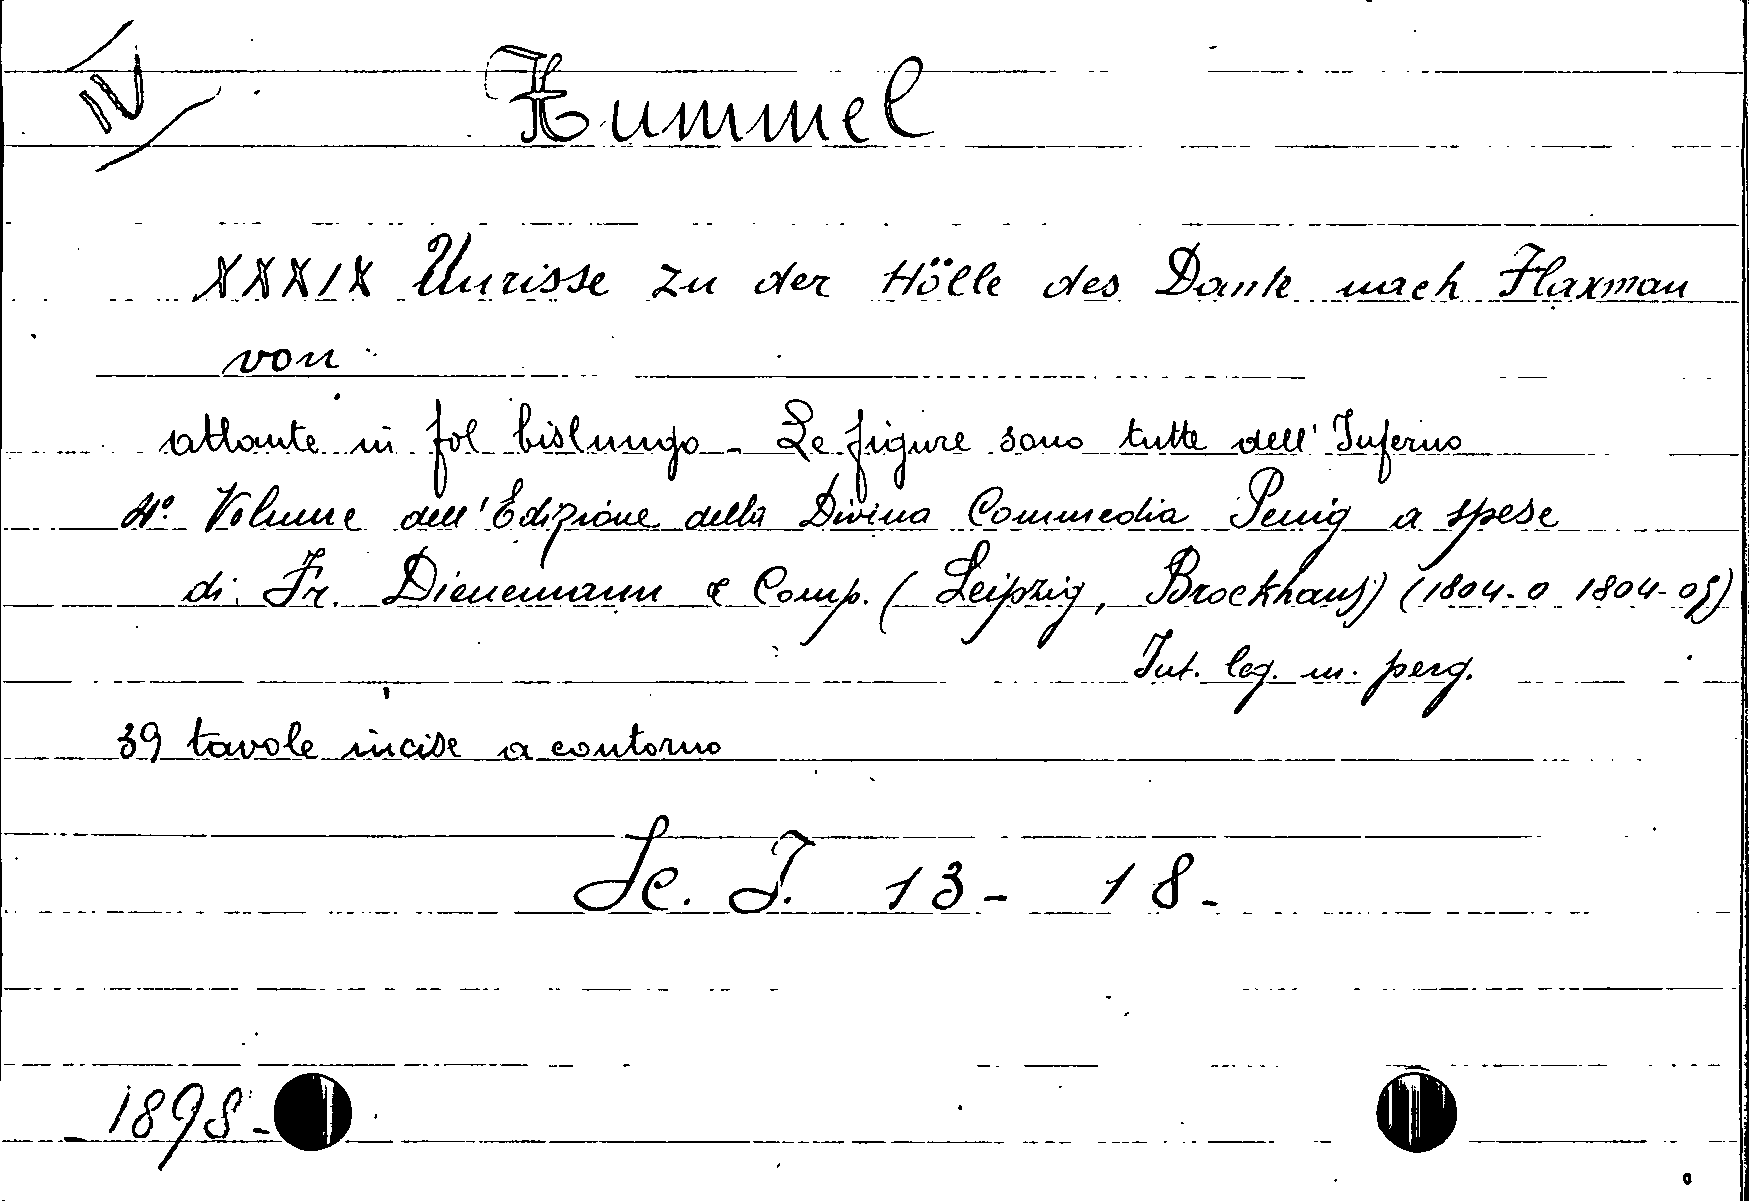 IV
Hummel
XXXIX Umrisse zu der Hölle des Dante nach Flaxman
von
atlante in fol bislungo - Le figure sono tutte dell' Inferno
4º Volume dell' Edizione della Divina Commedia Penig a spese
di Fr. Dienemann e Comp. (Leipzig, Brockhaus) (1804-0 1804-05)
Int. leg. m. perg.
39 tavole incise a contorno
Sc. I. 13 - 18 -
1898 -